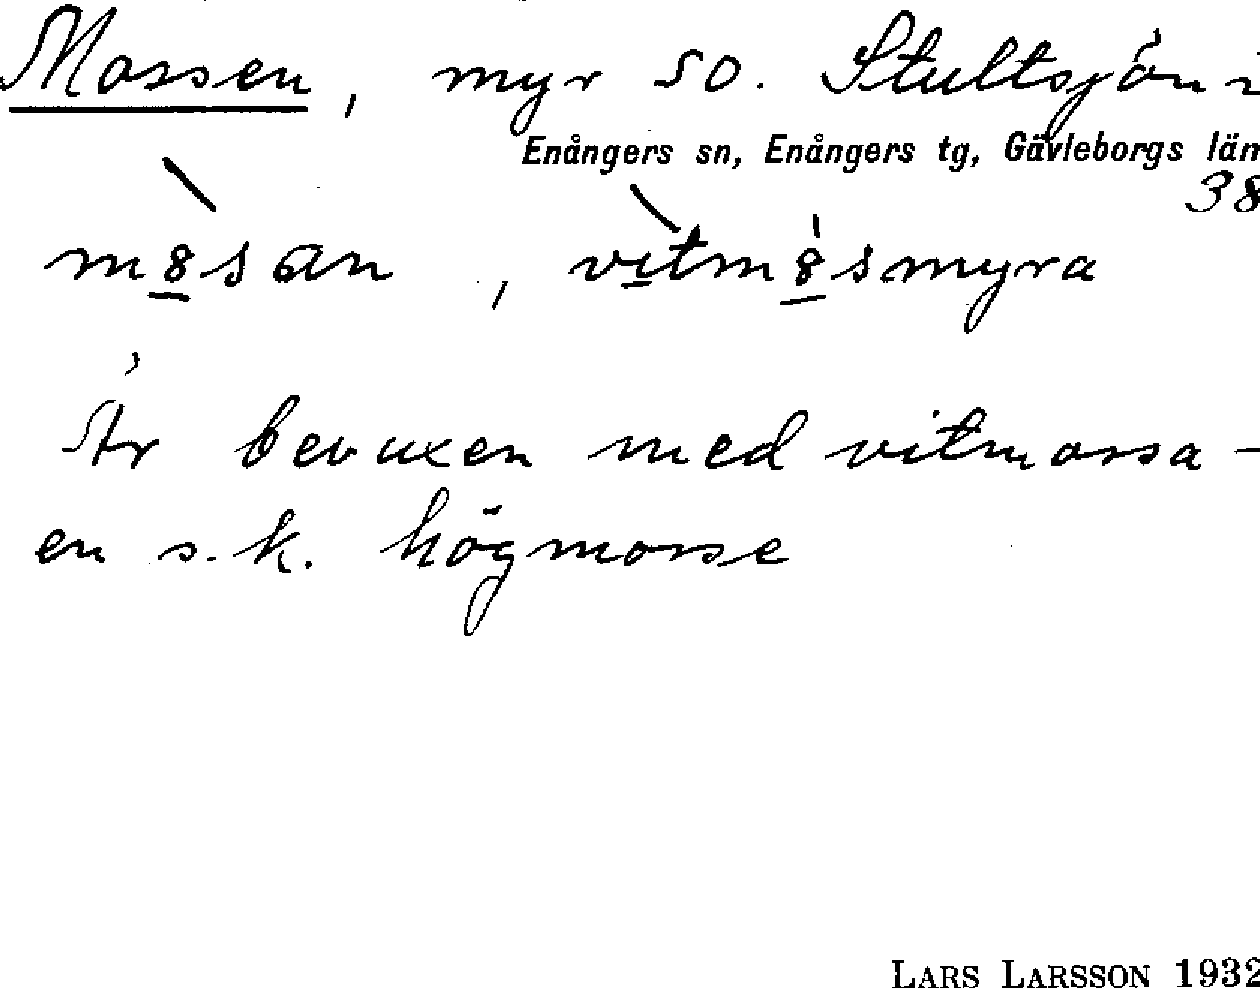 Mossen, myr SO. Stultsjön i
Enångers sn, Enångers tg, Gävleborgs län
38
mo̲san , vi̲tmo̲smyra
Är bevuxen med vitmossa –
en s.k. högmosse
LARS LARSSON 1932